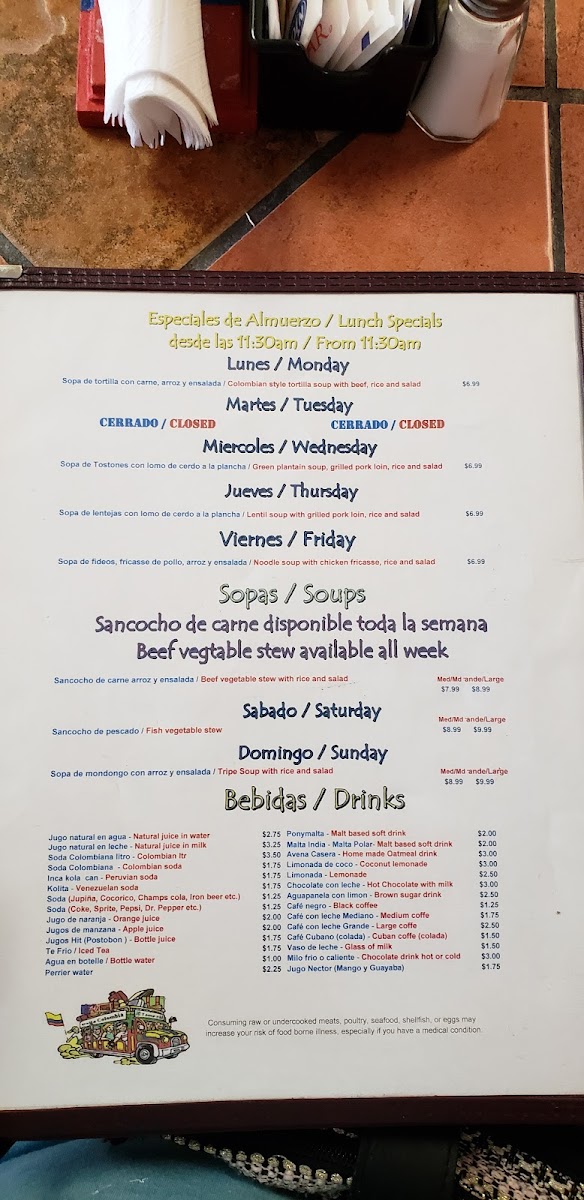 Especiales de Almuerzo / Lunch Specials
desde las 11:30am / From 11:30am
Lunes / Monday
Sopa de tortilla con carne, arroz y ensalada / Colombian style tortilla soup with beef, rice and salad $6.99
Martes / Tuesday
CERRADO / CLOSED CERRADO / CLOSED
Miercoles / Wednesday
Sopa de Tostones con lomo de cerdo a la plancha / Green plantain soup, grilled pork loin, rice and salad $6.99
Jueves / Thursday
Sopa de lentejas con lomo de cerdo a la plancha / Lentil soup with grilled pork loin, rice and salad $6.99
Viernes / Friday
Sopa de fideos, fricasse de pollo, arroz y ensalada / Noodle soup with chicken fricasse, rice and salad $6.99
Sopas / Soups
Sancocho de carne disponible toda la semana
Beef vegtable stew available all week
Sancocho de carne arroz y ensalada / Beef vegetable stew with rice and salad Med/Md ande/Large
$7.99 $8.99
Sabado / Saturday
Sancocho de pescado / Fish vegetable stew Med/Md ande/Large
$8.99 $9.99
Domingo / Sunday
Sopa de mondongo con arroz y ensalada / Tripe Soup with rice and salad Med/Md ande/Large
$8.99 $9.99
Bebidas / Drinks
Jugo natural en agua - Natural juice in water $2.75
Jugo natural en leche - Natural juice in milk $3.25
Soda Colombiana litro - Colombian ltr $3.50
Soda Colombiana - Colombian soda $1.75
Inca kola can - Peruvian soda $1.75
Kolita - Venezuelan soda $1.75
Soda (Jupiña, Cocorico, Champs cola, Iron beer etc.) $1.25
Soda (Coke, Sprite, Pepsi, Dr, Pepper etc.) $1.25
Jugo de naranja - Orange juice $2.00
Jugos de manzana - Apple juice $2.00
Jugos Hit (Postobon) - Bottle juice $1.75
Te Frio / Iced Tea $1.75
Agua en botelle / Bottle water $1.00
Perrier water $2.25
Ponymalta - Malt based soft drink $2.00
Malta India - Malta Polar- Malt based soft drink $2.00
Avena Casera - Home made Oatmeal drink $3.00
Limonada de coco - Coconut lemonade $3.00
Limonada - Lemonade $2.50
Chocolate con leche - Hot Chocolate with milk $3.00
Aguapanela con limon - Brown sugar drink $2.50
Café negro - Black coffee $1.25
Café con leche Mediano - Medium coffe $1.75
Café con leche Grande - Large coffe $2.50
Café Cubano (colada) - Cuban coffe (colada) $1.50
Vaso de leche - Glass of milk $1.50
Milo frio o caliente - Chocolate drink hot or cold $3.00
Jugo Nector (Mango y Guayaba) $1.75
Consuming raw or undercooked meats, poultry, seafood, shellfish, or eggs may
increase your risk of food borne illness, especially if you have a medical condition.